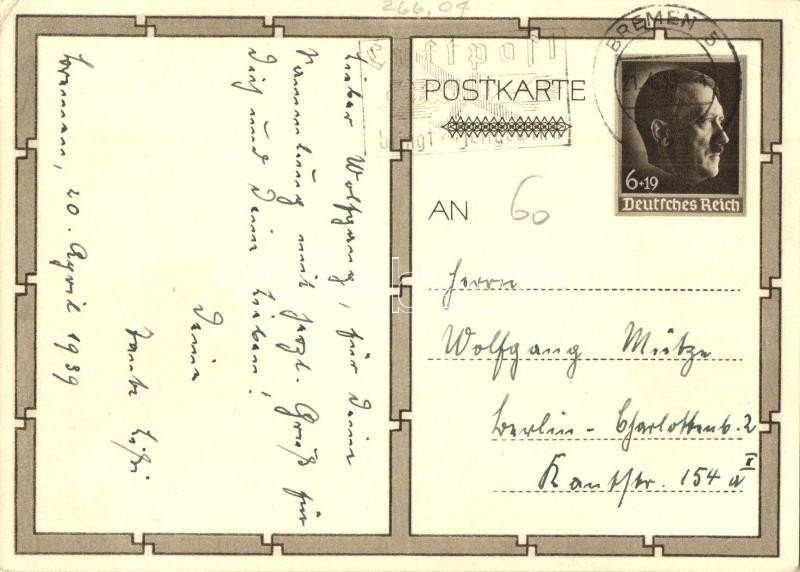 266,04
Luftpost
BREMEN 5
POSTKARTE
6+19
Deutsches Reich
AN
60
Herrn
Wolfgang Mütze
Berlin - Charlottenb. 2
Kantstr. 154 a II
Lieber Wolfgang, für Deine
Sammlung mit herzl. Gruß für
Dich und Deine Lieben,
Deine
Tante Lissi
Bremen, 20. April 1939